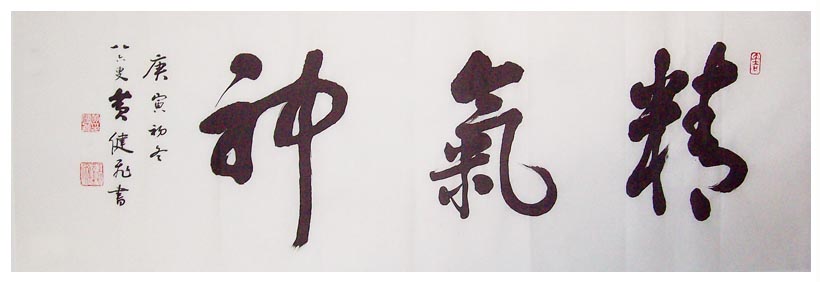 精氣神
庚寅初冬
八六叟黄健飛書